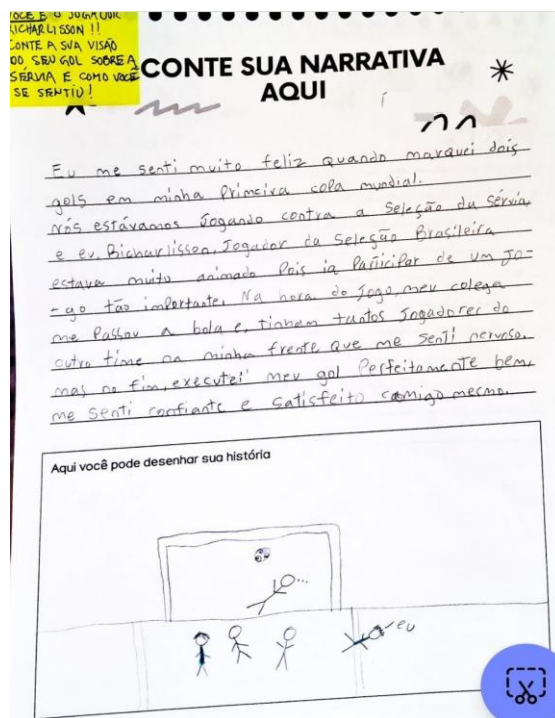 VOCÊ É O JOGADOR
RICHARLISSON !!
CONTE A SUA VISÃO
DO SEU GOL SOBRE A
SÉRVIA E COMO VOCÊ
SE SENTIU!
CONTE SUA NARRATIVA
AQUI
Eu me senti muito feliz quando marquei dois
gols em minha Primeira copa mundial.
Nós estávamos Jogando contra a Seleção da Sérvia,
e eu, Richarlisson, Jogador da Seleção Brasileira
estava muito animado Pois ia Participar de um Jo-
-go tão importante. Na hora do Jogo, meu colega
me Passou a bola e, tinham tantos Jogadores do
outro time na minha frente que me senti nervoso.
mas no fim, executei meu gol Perfeitamente bem,
me senti confiante e satisfeito comigo mesmo.
Aqui você pode desenhar sua história
...
eu